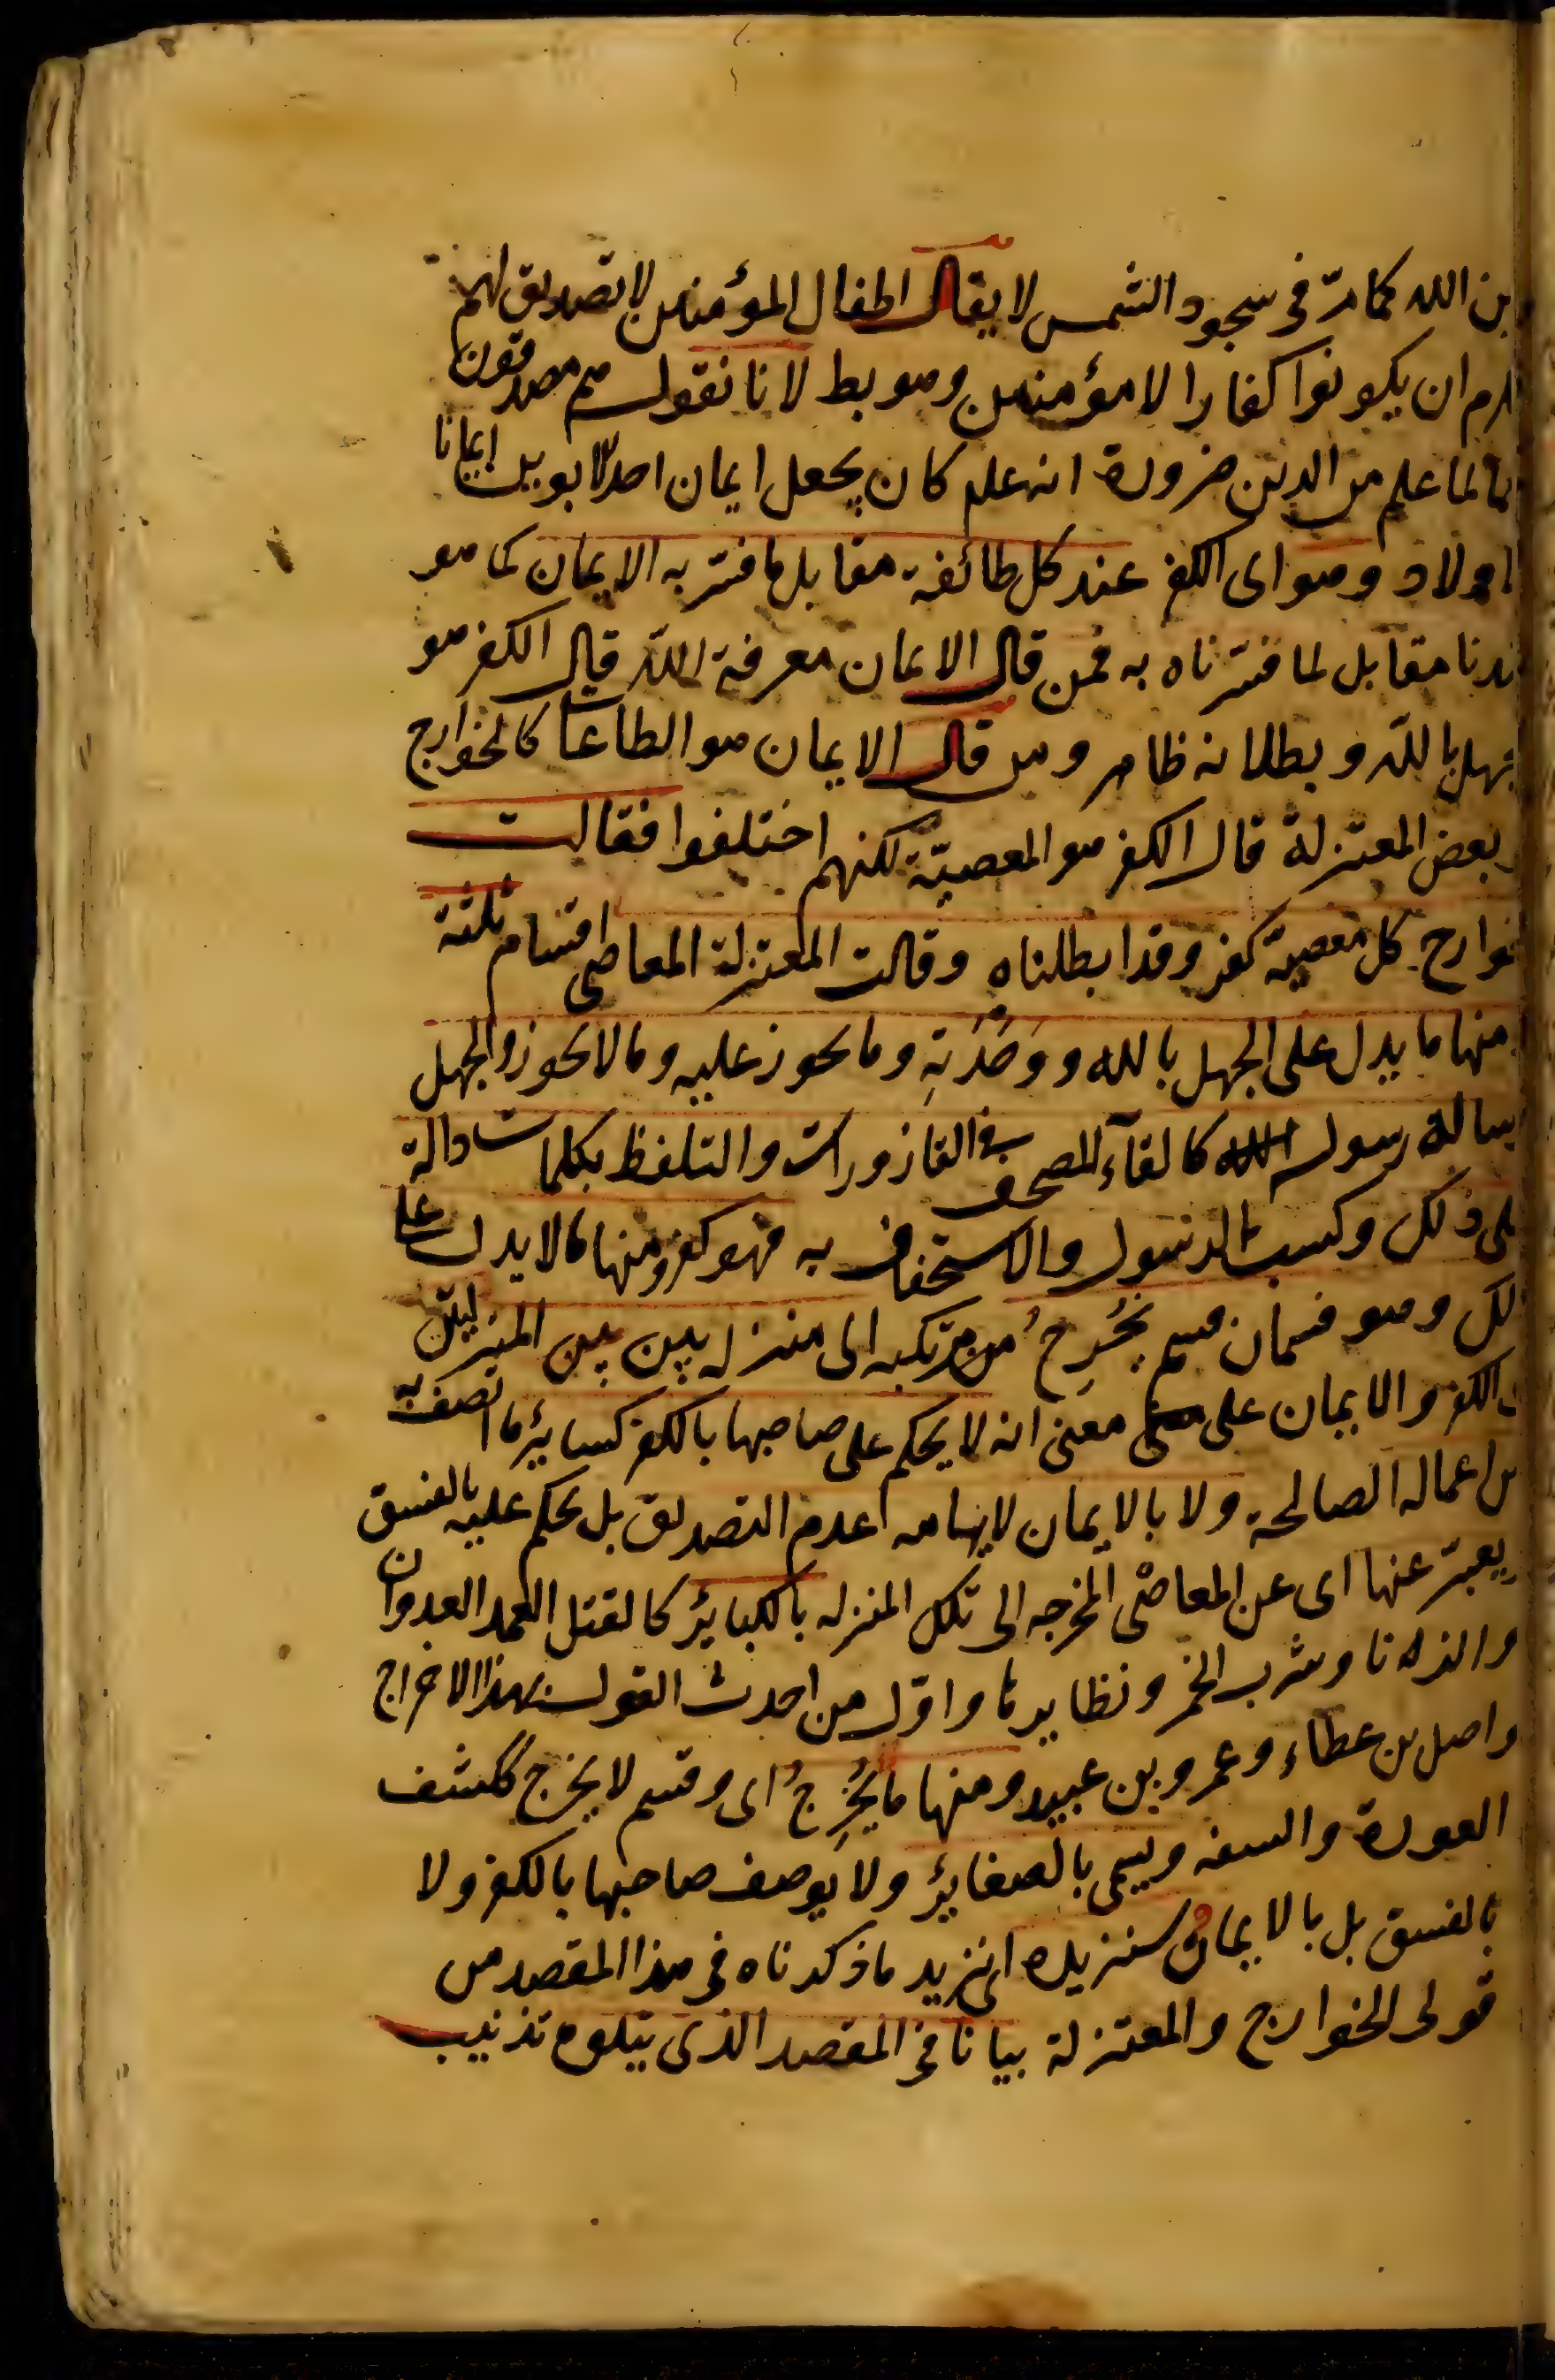 بن الله كما مرّ فى سجود الشمس لا يقال اطفال المؤمنين لا تصديق لهم
لزم ان يكونوا كفارا لا مؤمنين وهو بط لانا نقول هم مصدقون
لما علم من الدين ضرورة انه علم كان يجعل ايمان احد الابوين ايمانا
للاولاد وهو اى الكفر عند كل طائفة مقابل ما فسّر به الايمان كما هو
عندنا مقابل لما فسّرناه به فمن قال الايمان معرفة الله قال الكفر هو
الجهل بالله وبطلانه ظاهر ومن قال الايمان هو الطاعات كالخوارج
وبعض المعتزلة قال الكفر هو المعصيّة لكنهم اختلفوا فقالت
الخوارج كل معصية كفر وقد ابطلناه وقالت المعتزلة المعاصى اقسام ثلثة
منها ما يدل على الجهل بالله ووحدته وما يجوز عليه وما لا يجوز والجهل
برسالة رسول الله كالقآء المصحف فى القاذورات والتلفظ بكلمات دالة
على ذلك وكسب الرسول والاستخفاف به فهو كفر ومنها ما لا يدل على
ذلك وهو قسمان قسم يُخرِجُ من مرتكبه الى منزلة بين بين المنزلتين
الكفر والايمان على معنى انه لا يحكم على صاحبها بالكفر كسائر ما اتصف به
من اعماله الصالحة ولا بالايمان لايهامه عدم التصديق بل يحكم عليه بالفسق
ويعبّر عنها اى عن المعاصى المخرجه الى تلك المنزله بالكبائر كالقتل العمد العدوان
والزنا وشرب الخمر ونظايرها واوّل من احدث القول بهذا الاخراج
واصل بن عطاء وعمرو بن عبيد ومنها ما يُخرِجُ اى وقسم لا يخرج ككشف
العورة والسفه ويسمى بالصغائر ولا يوصف صاحبها بالكفر ولا
بالفسق بل بالايمان وسنزيده اى نزيد ما ذكرناه فى هذا المقصد من
قولى الخوارج والمعتزلة بيانا فى المقصد الذى يتلوه تذنيب